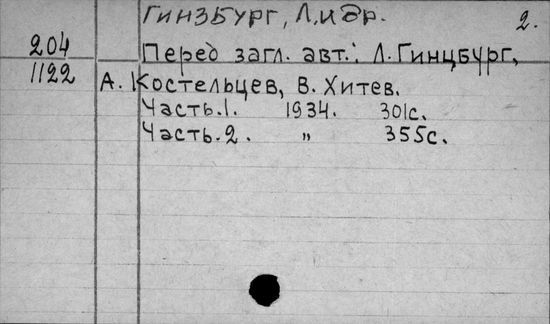 Гинзбург, Л. и др. 2.
204 Перед загл. авт.: Л. Гинцбург,
1122 А. Костельцев, В. Хитев.
Часть. 1. 1934. 301с.
Часть. 2. " 355с.